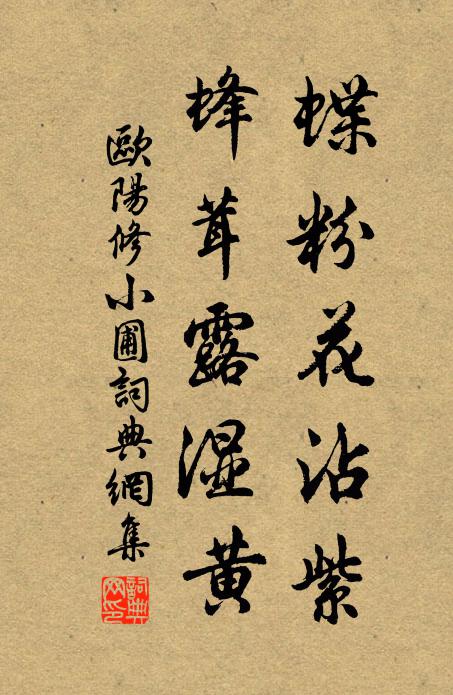 蝶粉花沾紫
蜂茸露湿黄
歐陽修小圃詞典網集
詞典网印